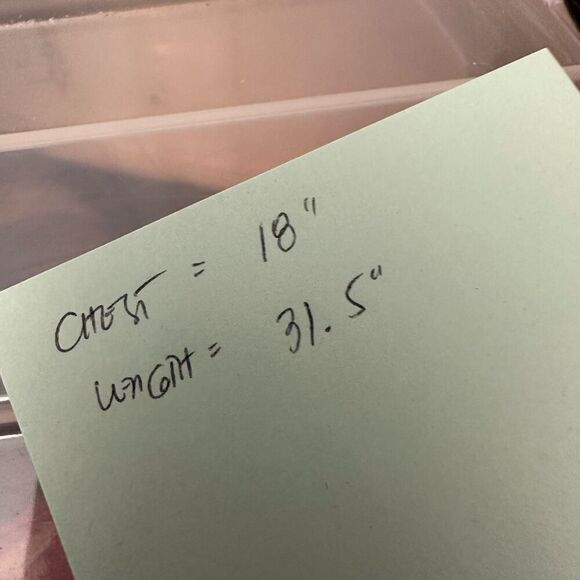 CHEST = 18"
LENGTH = 31.5"